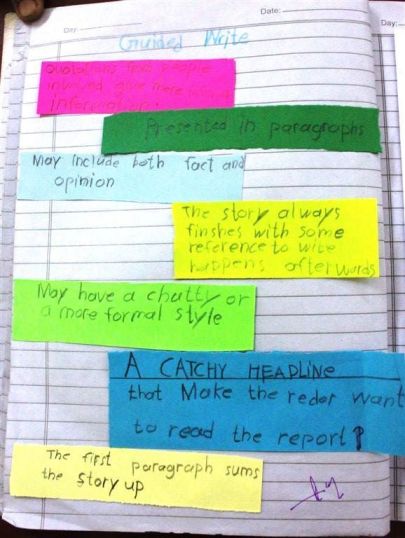 Day:
Date:
Day:
Guided Write
Quotations from people
involved give more
information.
Presented in paragraphs
May include both fact and
opinion
The story always
finshes with some
reference to wite
happens afterwards
May have a chatty or
a more formal style
A CATCHY HEADLINE
that Make the reder want
to read the report!
The first paragraph sums
the story up